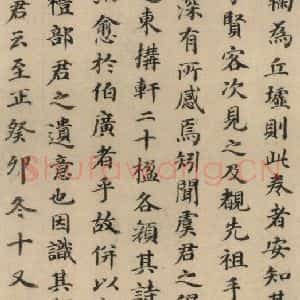 鞠為丘墟則此卷者安知其
賢客次見之及覩先祖手
深有所感焉矧聞虞君之
東搆軒二十楹各顏其詩
愈於伯廣者乎故併以
禮部君之遺意也因識其
君云至正癸卯冬十又
Shufawang.CN